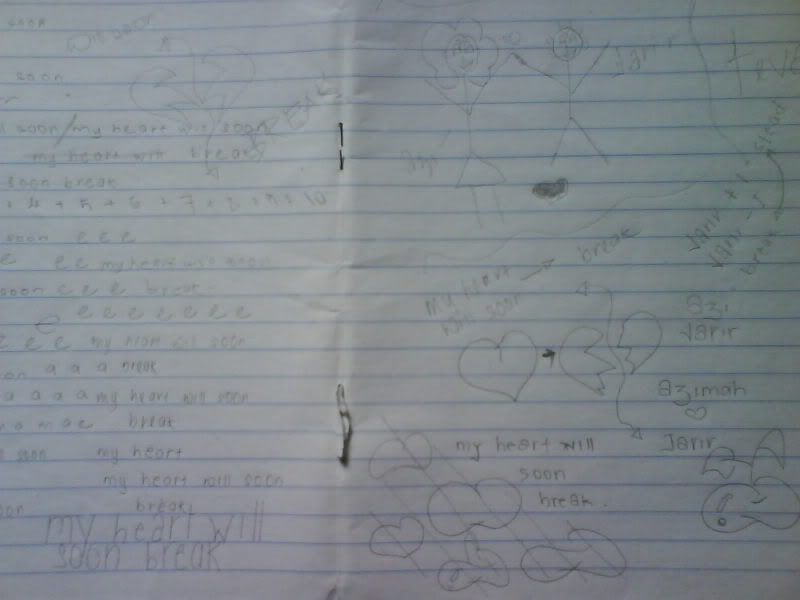 soon
will soon
soon
soon/my heart will soon
my heart will break
soon break
+ 4 + 5 + 6 + 7 + 8 + 9 + 10
soon e e e
e e e my heart will soon
soon e e e break
e e e e e e e e
e e e my heart will soon
a a a break
a a a a my heart will soon
break
soon my heart
my heart will soon
soon break
my heart will
soon break
Jarir
azi
my heart
will soon
break
Jarir + 1
Jarir - 1
break
azi
Jarir
azimah
Jarir
my heart will
soon
break.